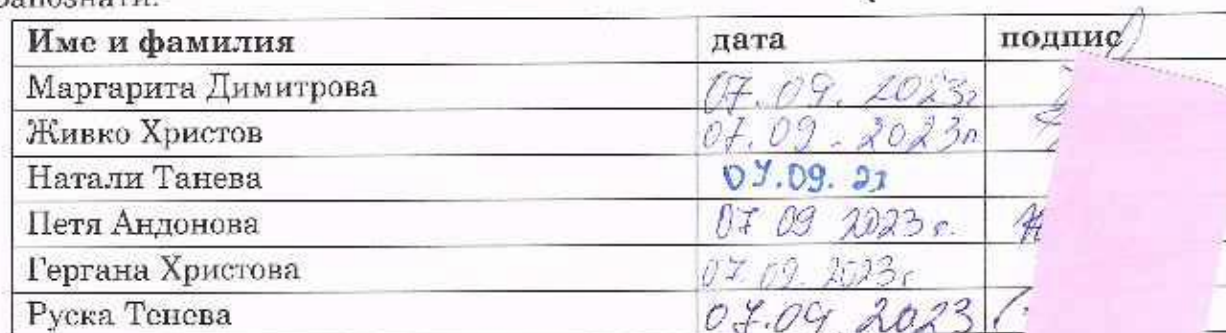 Запознати:
Име и фамилия дата подпис
Маргарита Димитрова 07.09.2023г
Живко Христов 07.09.2023г
Натали Танева 07.09.23
Петя Андонова 07 09 2023 г.
Гергана Христова 07.09.2023г
Руска Тенева 07.09 2023